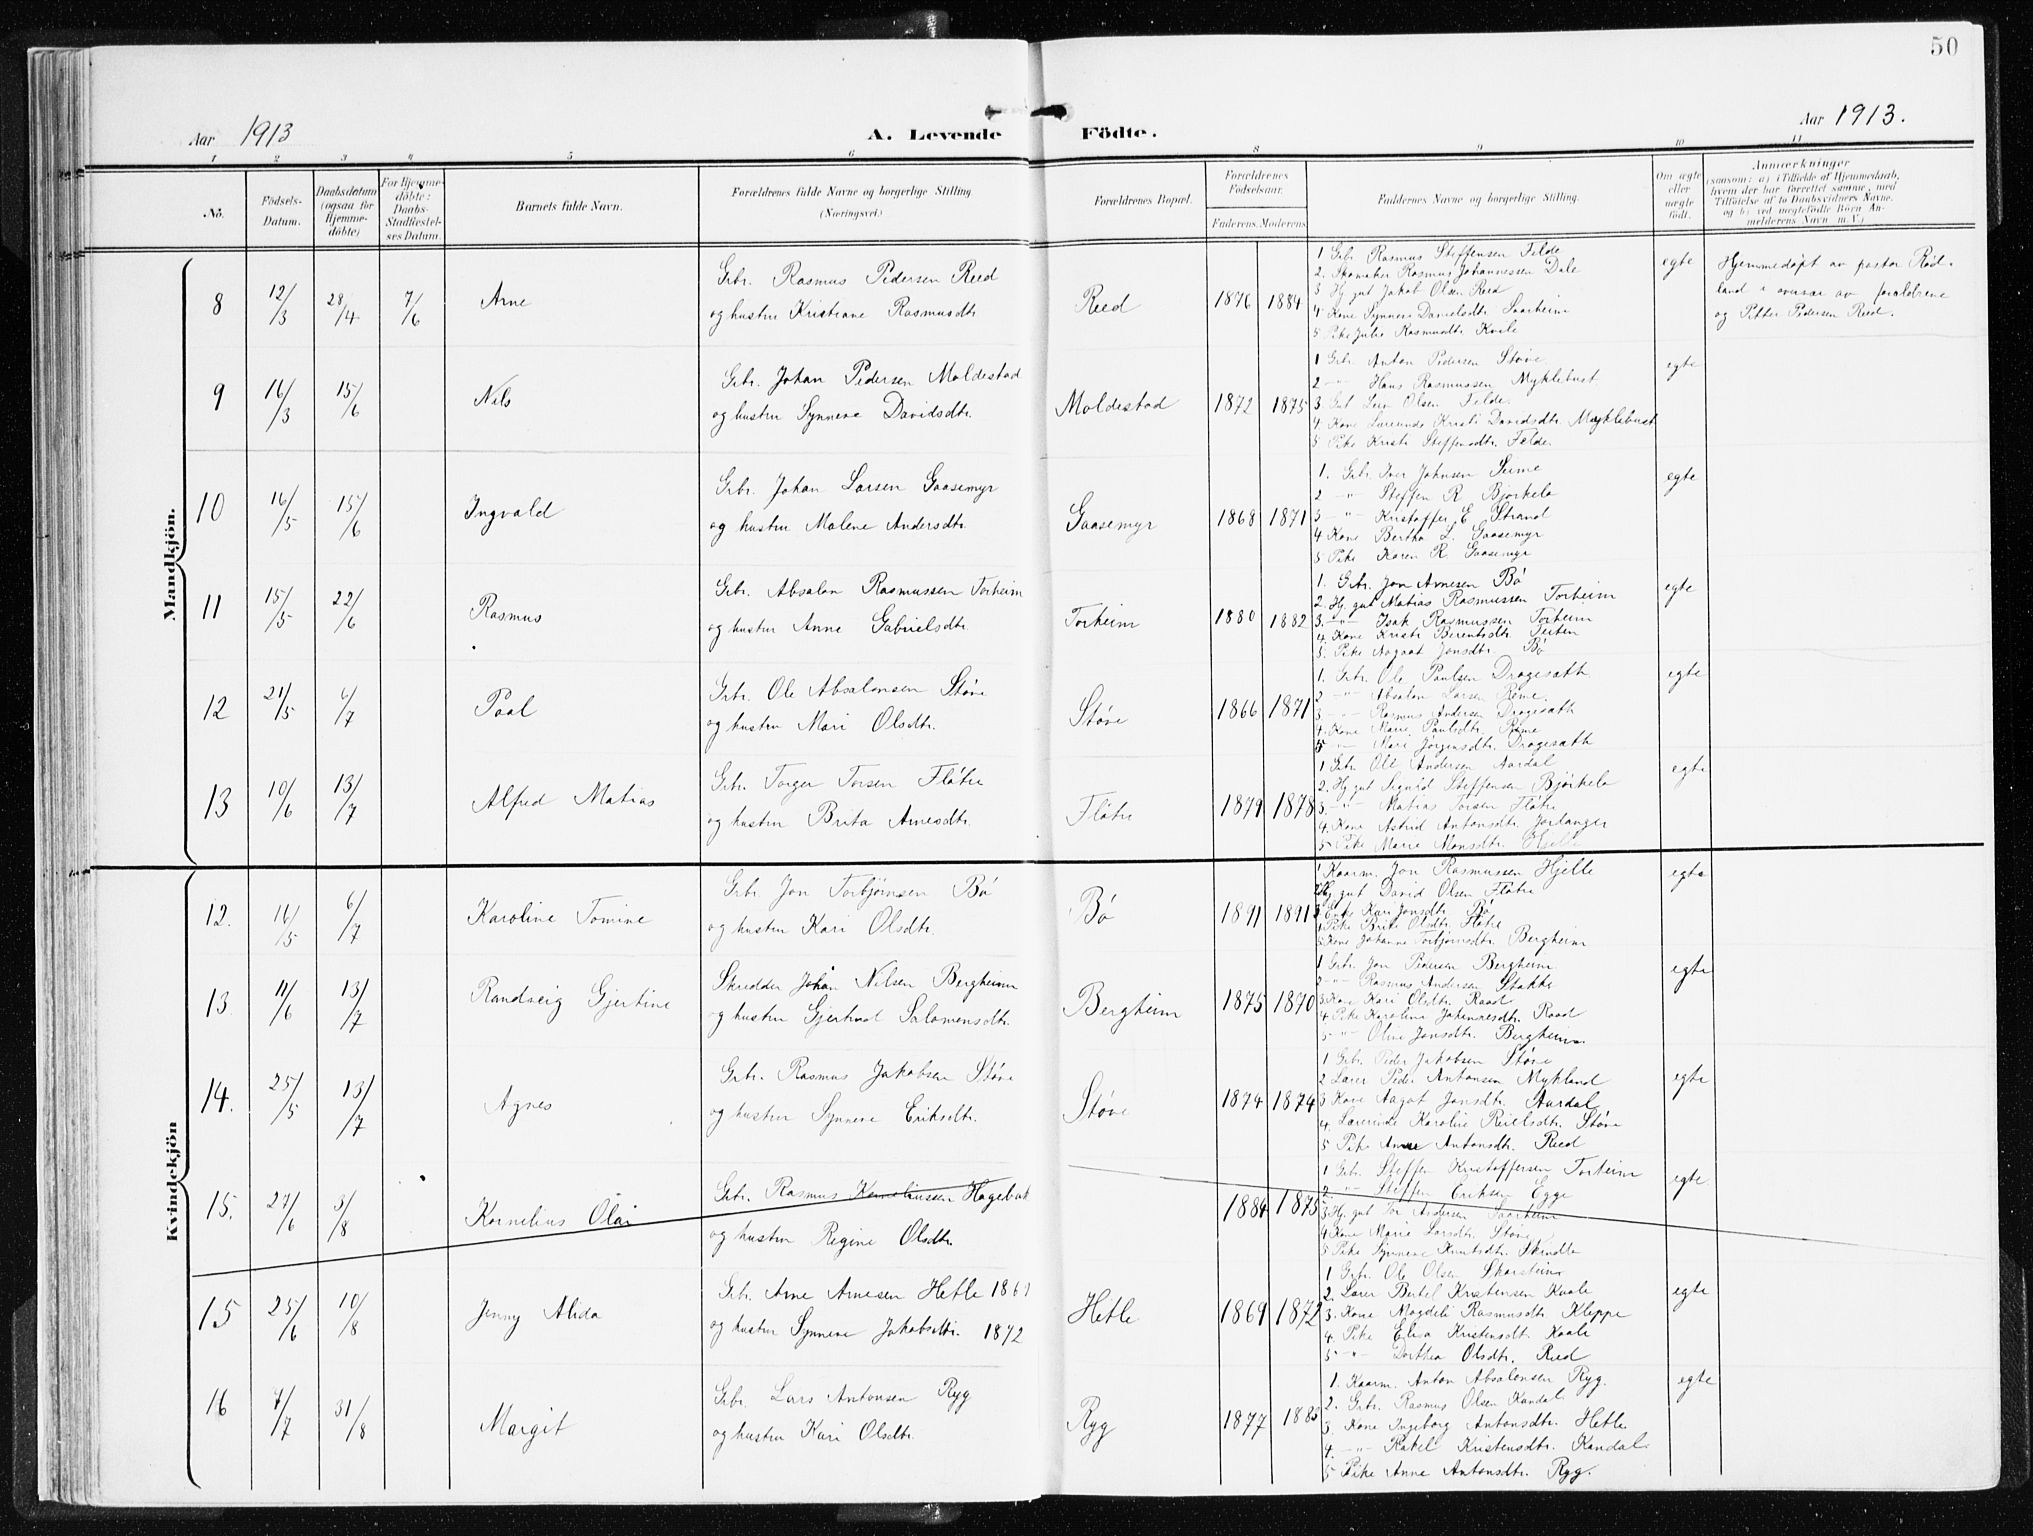 50
Aar 1913
A. Levende Födte.
Aar 1913.
1 2 3 4 5 6 8 9 10 11
No.
Födsels-Datum.
Daabsdatum (ogsaa for Hjemmedöbte)
For Hjemmedöbte: Daabs-Stadfæstelses Datum.
Barnets fulde Navn.
Forældrenes fulde Navne og borgerlige Stilling. (Næringsvei.)
Forældrenes Bopæl.
Forældrenes Födselsaar.
Faderens. Moderens.
Faddernes Navne og borgerlige Stilling.
Om ægte eller uægte födt.
Anmærkninger
(saasom: a) i Tilfælde af Hjemmedaab, hvem der har forrettet samme, med Tilföielse af to Daabsvidners Navne, og b) ved uægtefödte Börn Anmelderens Navn m. V.)
Mandkjön.
8 12/3 28/4 7/6 Arne
Grbr. Rasmus Pedersen Reed
og hustru Kristiane Rasmusdtr.
Reed 1876 1884
1 Grbr. Rasmus Steffensen Felde
2. Skomaker Rasmus Johannessen Dale
3 Hj. gut Jakob Olsen Reed
4 Kone Synneve Danielsdtr. Saarheim
5 Pike Julie Rasmusdtr. Kvile
egte
Hjemmedöpt av pastor Röd-
land i overvær av forældrene
og Petter Pedersen Reed.
9 16/3 15/6 Nils
Grbr. Johan Pedersen Moldestad
og hustru Synneve Davidsdtr.
Moldestad 1872 1875
1 Grbr. Anton Pedersen Støve
2 -"- Hans Rasmussen Myklebust
3. Gut Leiv Olsen Felde.
4. Kone Kristi Davidsdtr. Myklebust
5 Pike Kristi Steffensdtr. Felde.
egte
10 16/5 15/6 Ingvald
Grbr. Johan Larsen Gaasemyr
og hustru Malene Andersdtr.
Gaasemyr 1868 1871
1. Grbr. Iver Johnsen Seime
2 -"- Steffen R. Bjørkelo
3 -"- Kristoffer E. Strand
4 Kone Bertha L. Gaasemyr
5 Pike Karen R. Gaasemyr
egte
11 15/5 22/6 Rasmus
Grbr. Absalon Rasmussen Torheim
og hustru Anne Gabrielsdtr.
Torheim 1880 1882
1. Grbr. Jon Arnesen Bö
2. Hj. gut Matias Rasmussen Torheim
3. -"- Isak Rasmussen Torheim
4. Kone Kristi Berentsdtr.
5. Pike Aagaat Jonsdtr. Bö
egte
12 21/5 6/7 Paal
Grbr. Ole Absalonsen Støve
og hustru Mari Olsdtr.
Støve 1866 1871
1. Grbr. Ole Paulsen Dragesæth
2 -"- Absalon Larsen Reme
3 -"- Rasmus Andersen Dragesæth
4. Kone Marie Paulsdtr. Reme
5 -"- Mari Jørgensdtr. Dragesæth
egte
13 10/6 13/7 Alfred Matias
Grbr. Torger Torsen Fløtre
og hustru Brita Arnesdtr.
Fløtre 1879 1878
1 Grbr. Ole Andersen Aardal
2. Hj. gut Sigurd Steffensen Bjørkelo
3. -"- Matias Torsen Fløtre
4. Kone Astrid Antonsdtr. Jostanger
5 Pike Marie Monsdtr. Hjelle
egte
Kvindekjön
12. 16/5 6/7 Karoline Tomine
Grbr. Jon Torbjørnsen Bö
og hustru Kari Olsdtr.
Bö 1891 1891
1 Kaarm. Jon Rasmussen Hjelle
2 Hj. gut David Olsen Fløtre
3 Enke Kari Jonsdtr. Bö
4 Pike Brite Olsdtr. Fløtre
5 Kone Johanne Torbjørnsdtr. Bergheim
egte
13 11/6 13/7 Randveig Gjertine
Skredder Johan Nilsen Bergheim
og hustru Gjertrud Salomonsdtr.
Bergheim 1875 1870
1 Grbr. Jon Pedersen Bergheim
2 -"- Rasmus Andersen Stakke
3 Kone Kari Olsdtr. Raad
4 Pike Karoline Johannesdtr. Raad
5 -"- Oline Jonsdtr. Bergheim.
egte
14. 25/5 13/7 Agnes
Grbr. Rasmus Jakobsen Støve
og hustru Synneve Eriksdtr.
Støve 1874 1874
1 Grbr. Peder Jakobsen Støve
2 Lærer Peder Antonsen Mykland
3 Kone Aagot Jonsdtr. Aardal
4. Lærerinde Karoline Støve
5 Pike Anne Antonsdtr. Reed
egte
15. 27/6 3/8 Kornelius Olai
Grbr. Rasmus Korneliussen Hagebak
og hustru Regine Olsdtr.
1884 1875
1 Grbr. Steffen Kristoffersen Torheim
2 -"- Steffen Eriksen Egge
3 Hj. gut Tor Andersen Saarheim
4 Kone Marie Larsdtr. Støve
5 Pike Synneve Knutsdtr. Skindlo
egte
15 25/6 10/8 Jenny Alida
Grbr. Arne Arnesen Hetle 1869
og hustru Synneve Jakobsdtr. 1872
Hetle 1869 1872
1 Grbr. Ole Olsen Skarstein
2. Lærer Bertel Kristensen Kvale
3. Kone Magdeli Rasmusdtr. Kleppe
4. Pike Elisa Kristensdtr. Kvale
5 -"- Dorthea Olsdtr. Reed
egte
16 7/7 31/8 Margit
Grbr. Lars Antonsen Ryg
og hustru Kari Olsdtr.
Ryg 1877 1883
1. Kaarm. Anton Absalonsen Ryg.
2. Grbr. Rasmus Olsen Kandal
3. Kone Ingeborg Antonsdtr. Hetle
4. -"- Rakel Kristensdtr. Kandal.
5 Pike Anne Antonsdtr. Ryg.
egte